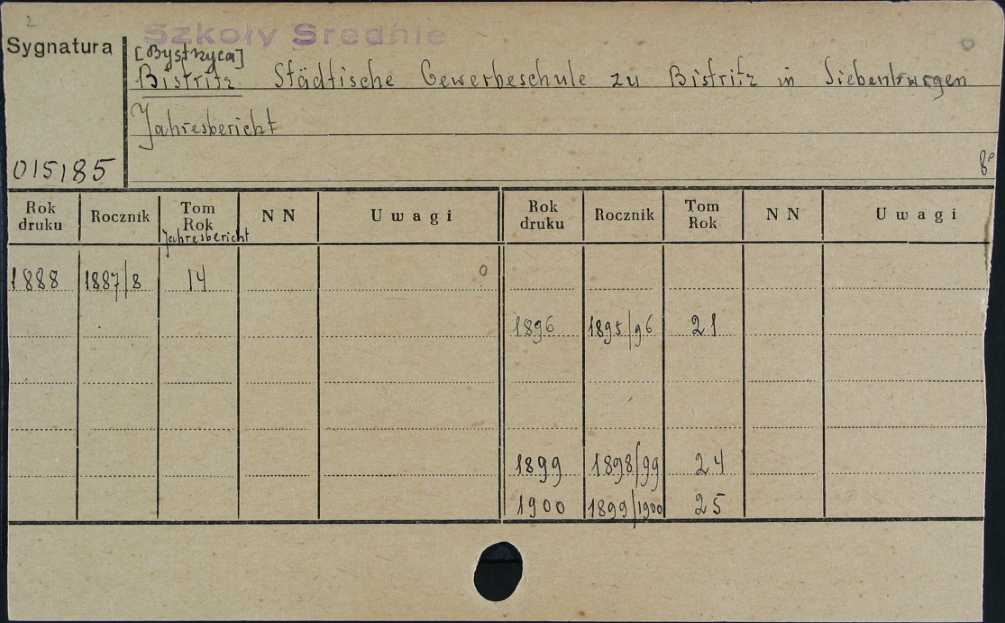 2
Szkoły Średnie
Sygnatura
[Bystrzyca]
Bistritz Städtische Gewerbeschule zu Bistritz in Siebenbürgen
Jahresbericht
015185
8°
Rok druku Rocznik Tom Rok NN Uwagi Rok druku Rocznik Tom Rok NN Uwagi
Jahresbericht
1888 1887/8 14
1896 1895/96 21
1899 1898/99 24
1900 1899/1900 25